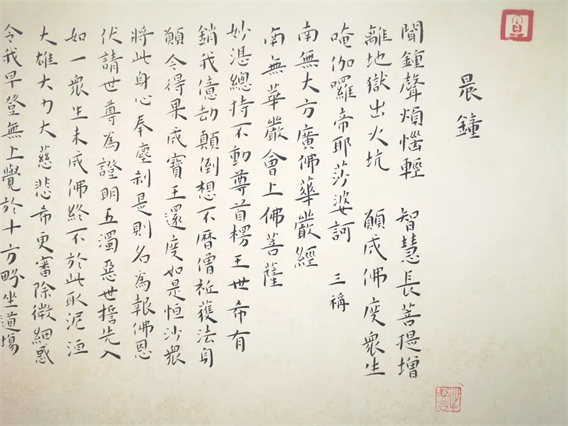 晨鐘
聞鐘聲煩惱輕 智慧長菩提增
離地獄出火坑 願成佛度眾生
唵伽囉帝耶莎婆訶 三稱
南無大方廣佛華嚴經
南無華嚴會上佛菩薩
妙湛總持不動尊首楞王世希有
銷我億劫顛倒想不曆僧祇獲法身
願令得果成寶王還度如是恒沙眾
將此身心奉塵剎是則名為報佛恩
伏請世尊為證明五濁惡世誓先入
如一眾生未成佛終不於此取泥洹
大雄大力大慈悲希更審除微細惑
令我早登無上覺於十方畍坐道場